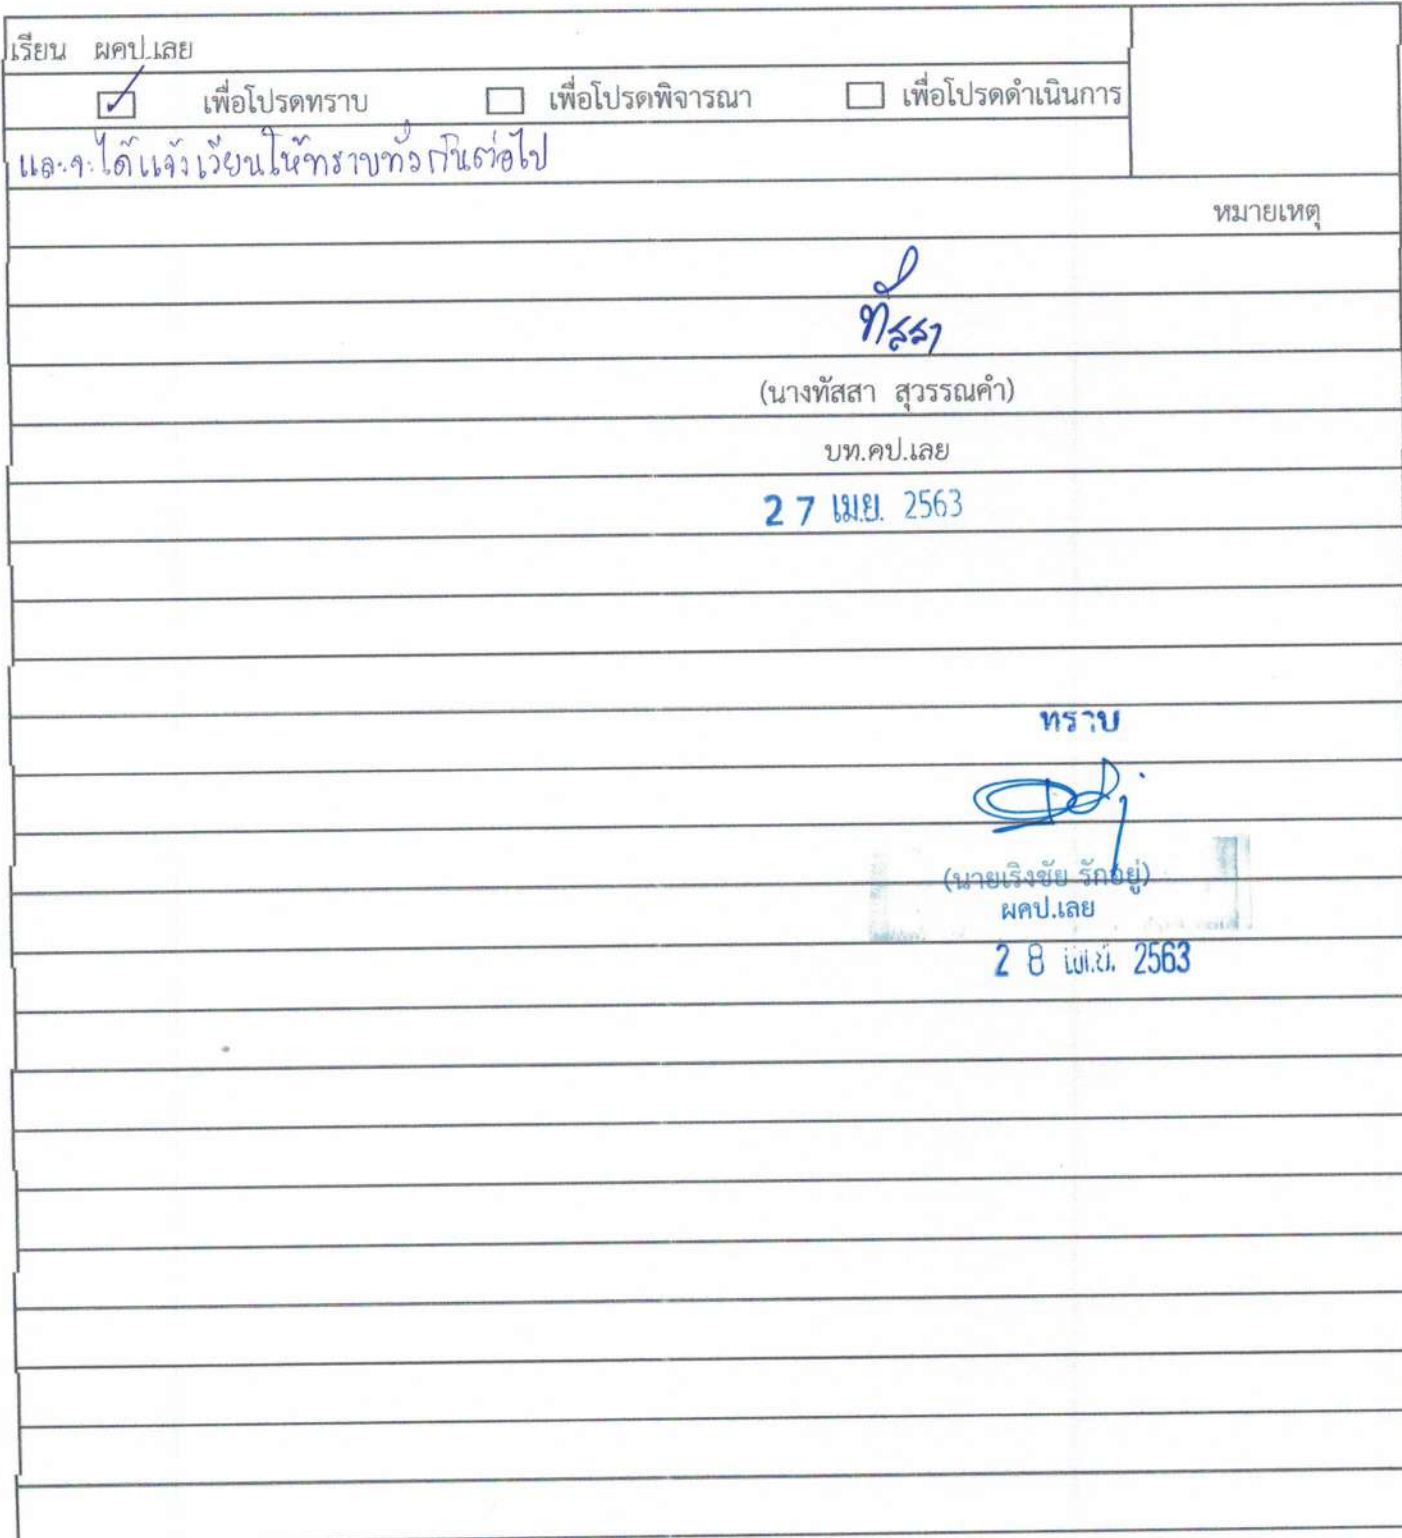 เรียน ผคป.เลย
เพื่อโปรดทราบ เพื่อโปรดพิจารณา เพื่อโปรดดำเนินการ
และจะได้แจ้งเวียนให้ทราบทั่วกันต่อไป
หมายเหตุ
ทัสสา
(นางทัสสา สุวรรณคำ)
บท.คป.เลย
27 เม.ย. 2563
ทราบ
(นายเริงชัย รักอยู่)
ผคป.เลย
28 เม.ย. 2563